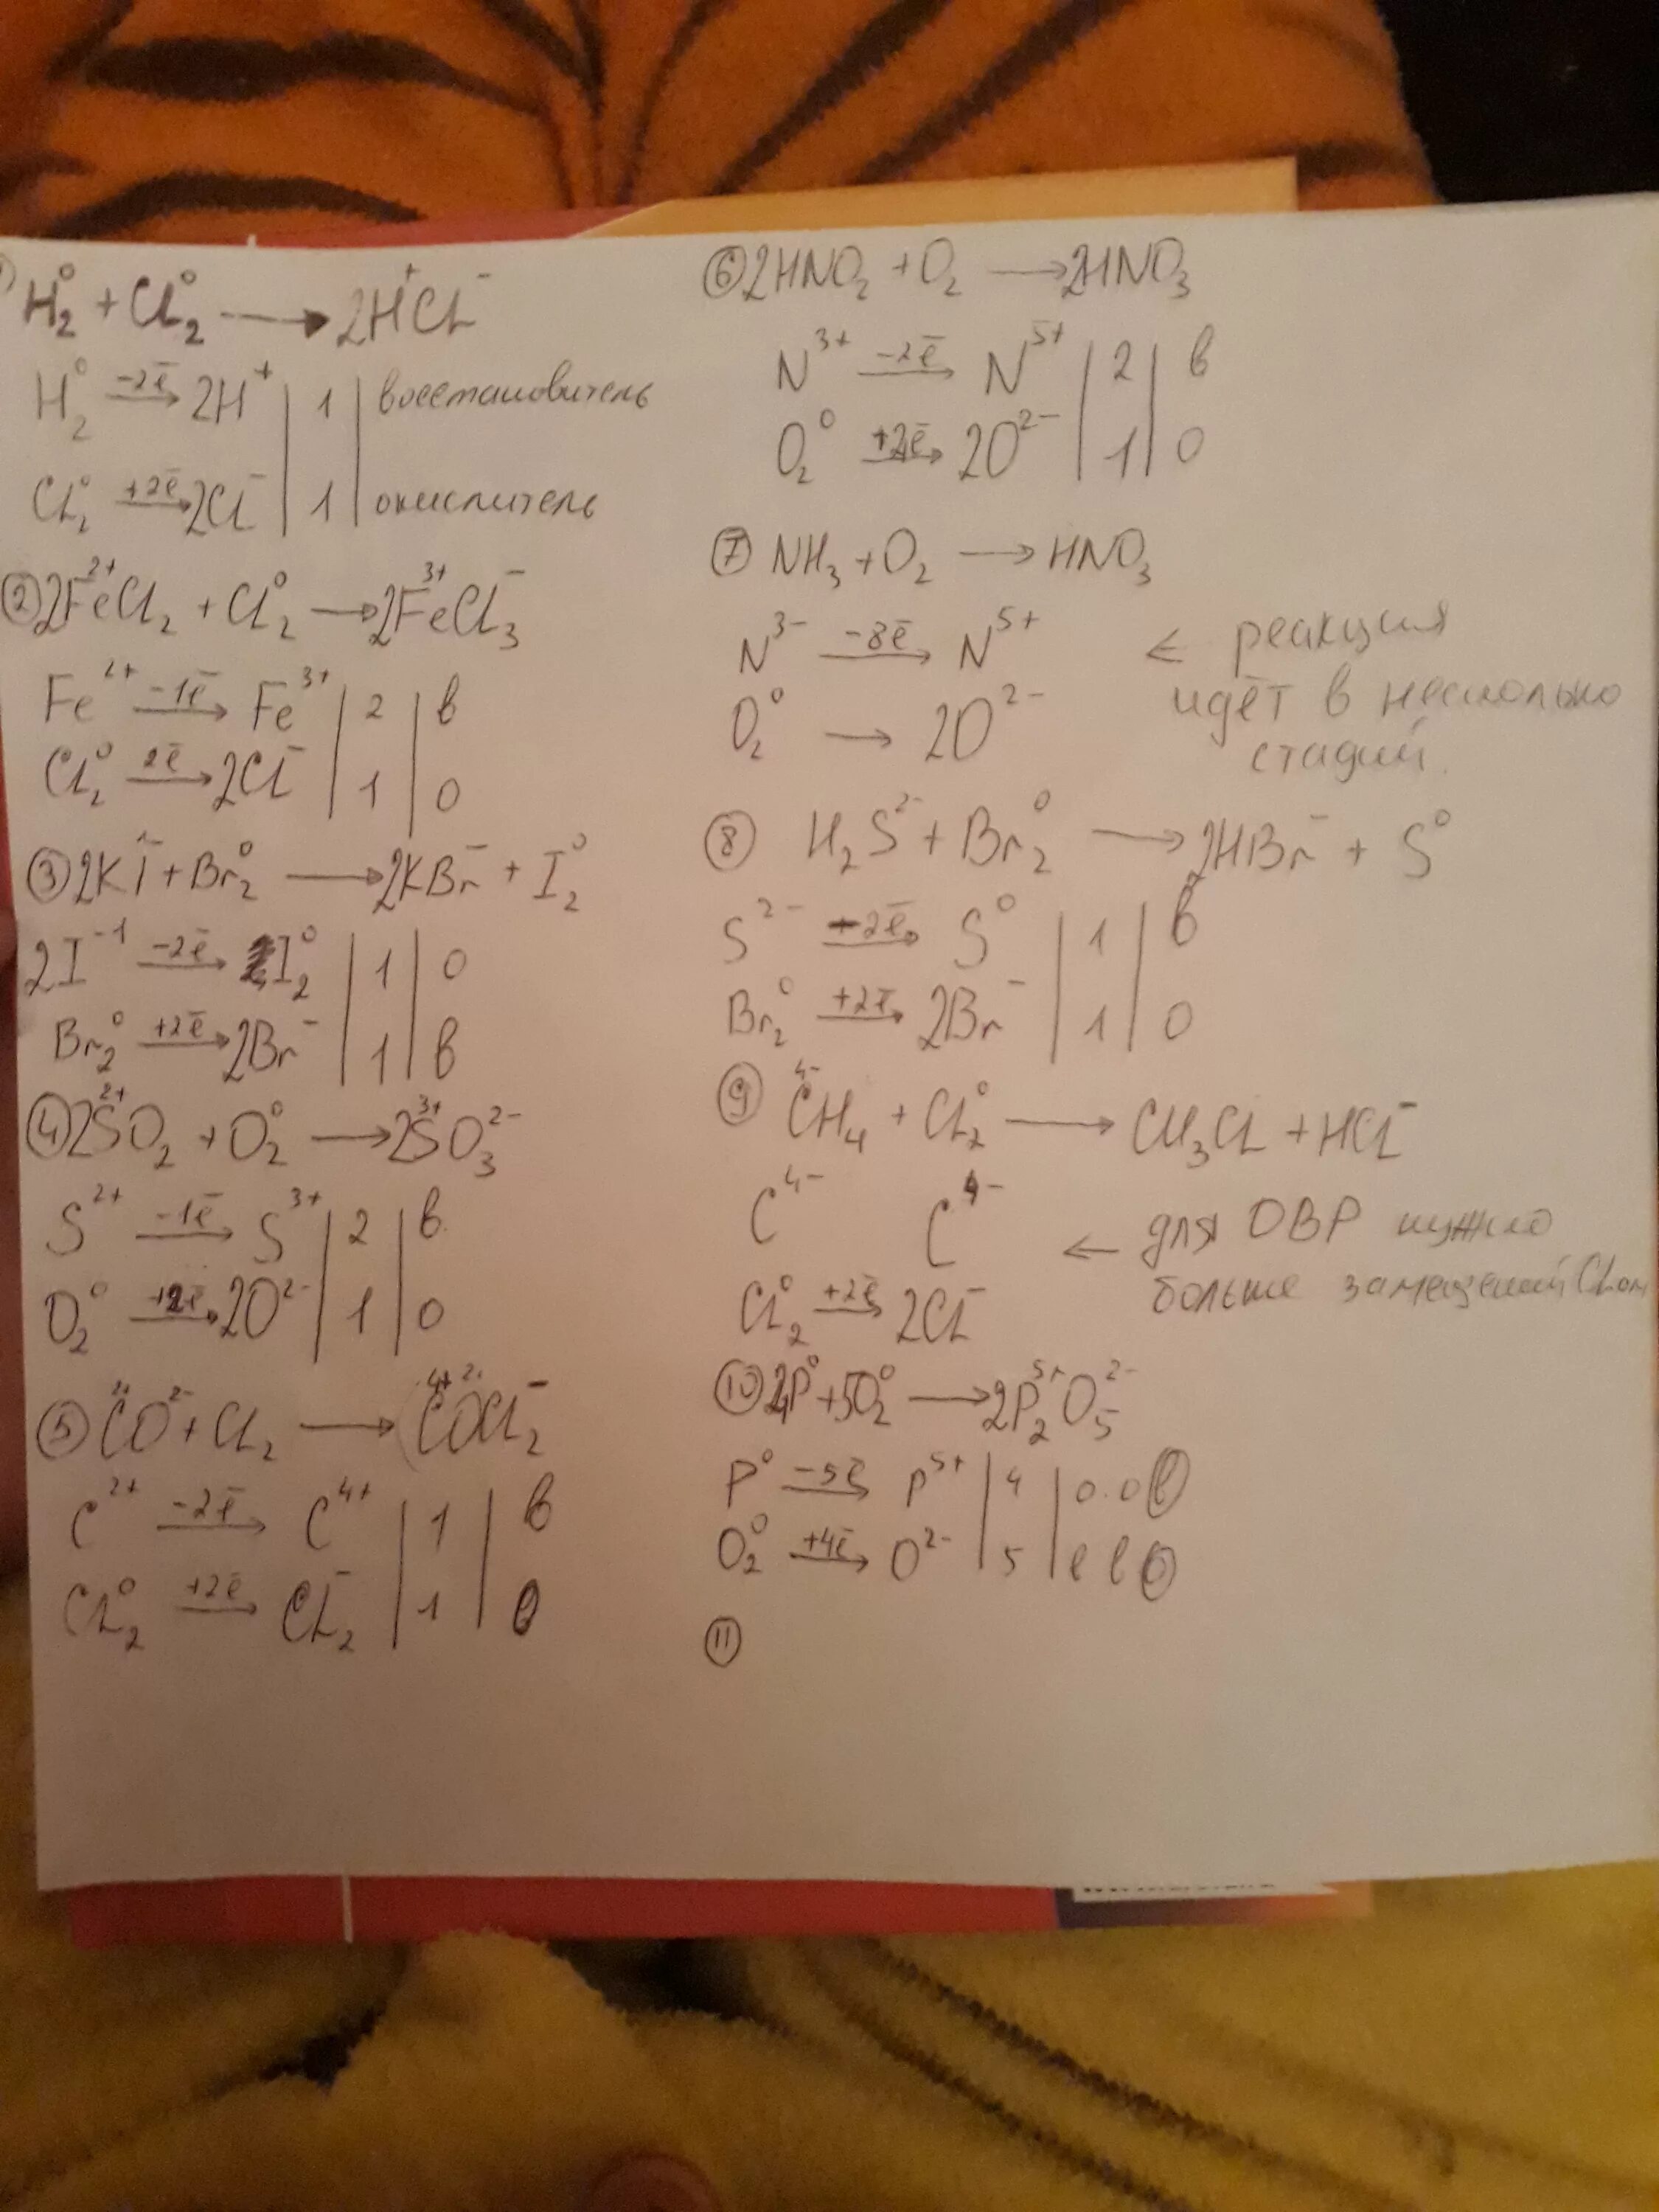 H₂⁰ + Cl₂⁰ → 2H⁺Cl⁻
H₂⁰ –2ē→ 2H⁺ | 1 | восстановитель
Cl₂⁰ +2ē→ 2Cl⁻ | 1 | окислитель
② 2Fe²⁺Cl₂ + Cl₂⁰ → 2Fe³⁺Cl₃⁻
Fe²⁺ –1ē→ Fe³⁺ | 2 | в
Cl₂⁰ 2ē→ 2Cl⁻ | 1 | о
③ 2KI⁻ + Br₂⁰ → 2KBr⁻ + I₂⁰
2I⁻¹ –2ē→ I₂⁰ | 1 | о
Br₂⁰ +2ē→ 2Br⁻ | 1 | в
④ 2S²⁺O₂ + O₂⁰ → 2S³⁺O₃²⁻
S²⁺ –1ē→ S³⁺ | 2 | в.
O₂⁰ +2ē→ 2O²⁻ | 1 | о
⑤ CO²⁻ + Cl₂ → COCl₂⁻
C²⁺ –2ē→ C⁴⁺ | 1 | в
Cl₂⁰ +2ē→ Cl₂⁻ | 1 |
⑥ 2HNO₂ + O₂ → 2HNO₃
N³⁺ –2ē→ N⁵⁺ | 2 | в
O₂⁰ +2ē→ 2O²⁻ | 1 | о
⑦ NH₃ + O₂ → HNO₃
N³⁻ –8ē→ N⁵⁺ ← реакция
идёт в несколько
O₂⁰ → 2O²⁻
стадий.
⑧ H₂S²⁻ + Br₂⁰ → 2HBr⁻ + S⁰
S²⁻ –2ē→ S⁰ | 1 | в
Br₂⁰ +2ē→ 2Br⁻ | 1 | о
⑨ C⁴⁻H₄ + Cl₂⁰ → CH₃Cl + HCl⁻
C⁴⁻ C⁴⁻
← для ОВР нужно
больше замещений Clом
Cl₂⁰ +2ē→ 2Cl⁻
⑩ 4P⁰ + 5O₂⁰ → 2P₂⁵⁺O₅²⁻
P⁰ –5ē→ P⁵⁺ | 4 | о.о в
O₂⁰ +4ē→ O²⁻ | 5 | в в о
⑪